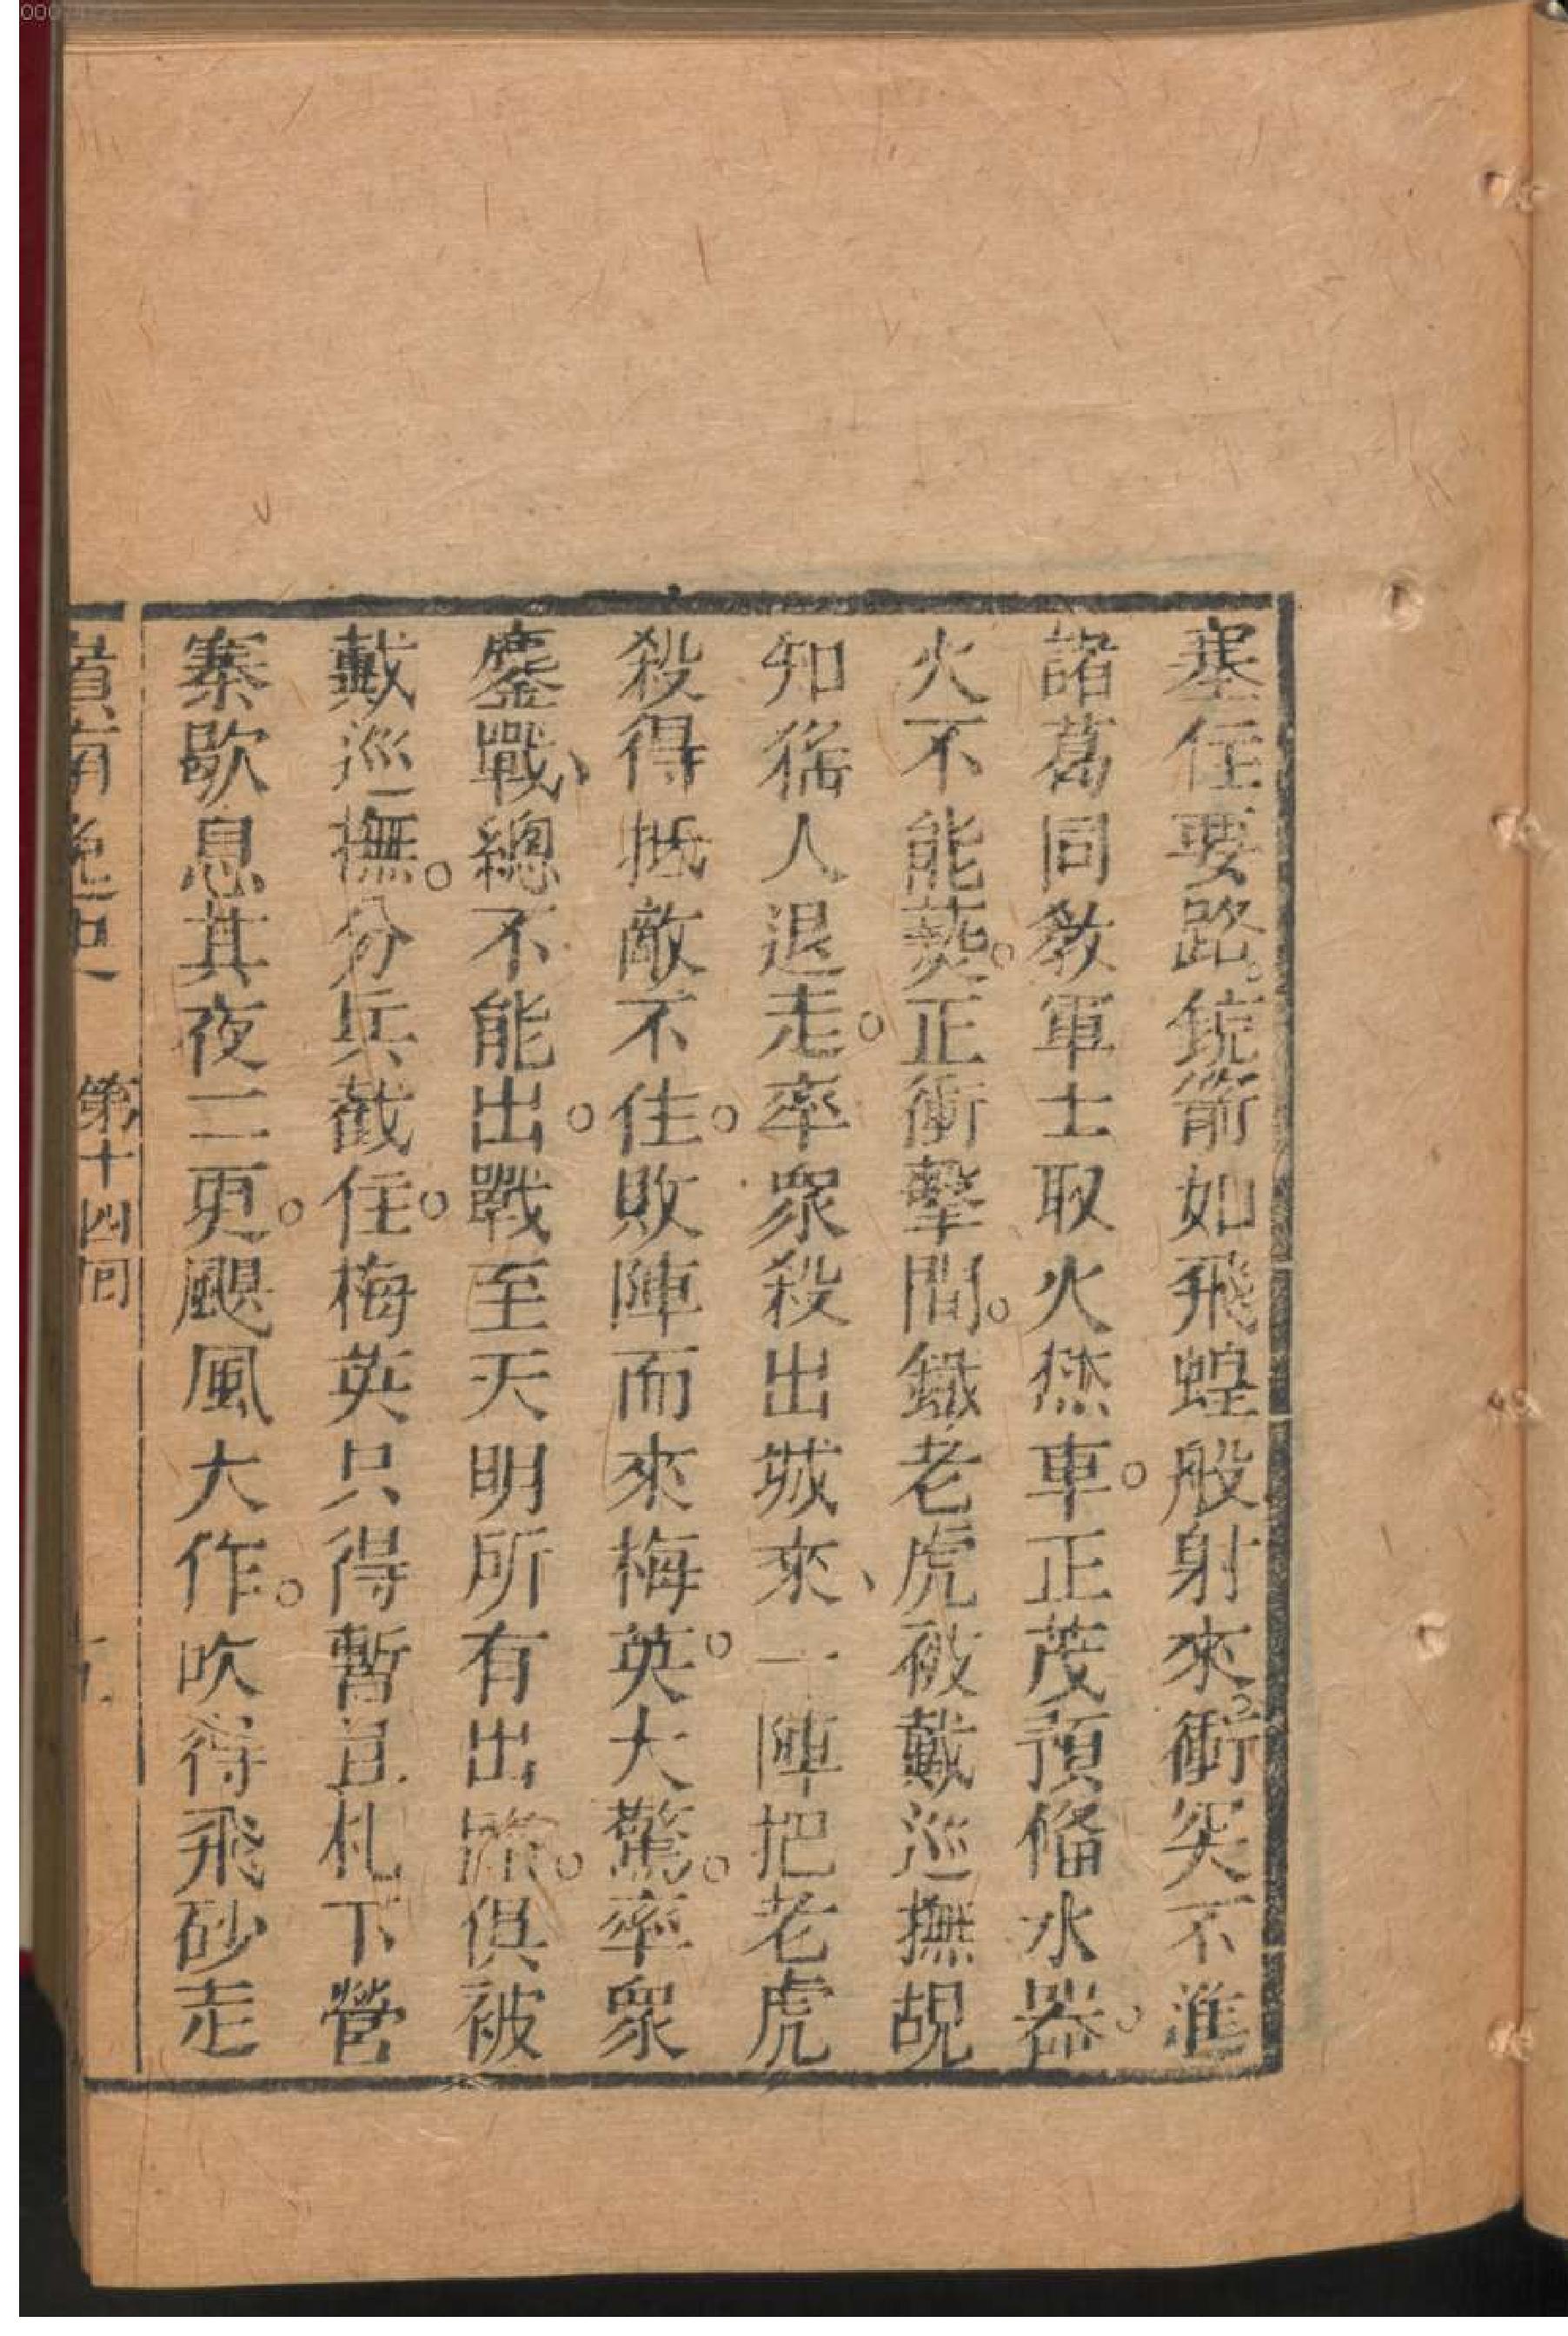 塞住要路。銃箭如飛蝗般射來。衝突不進
諸葛同教軍士取火㷊車。正茂預俻水器。
火不能爇。正衝擊間。鐵老虎被戴巡撫覘
知猺人退走。率衆殺出城來、一陣把老虎
殺得抵敵不住。敗陣而來梅英。大驚。率衆
鏖戰、總不能出。戰至天明所有出路。俱被
戴巡撫。分兵截住。梅英只得暫且札下營
寨歇息其夜二更。颶風大作。吹得飛砂走
嶺南逸史 第十四回